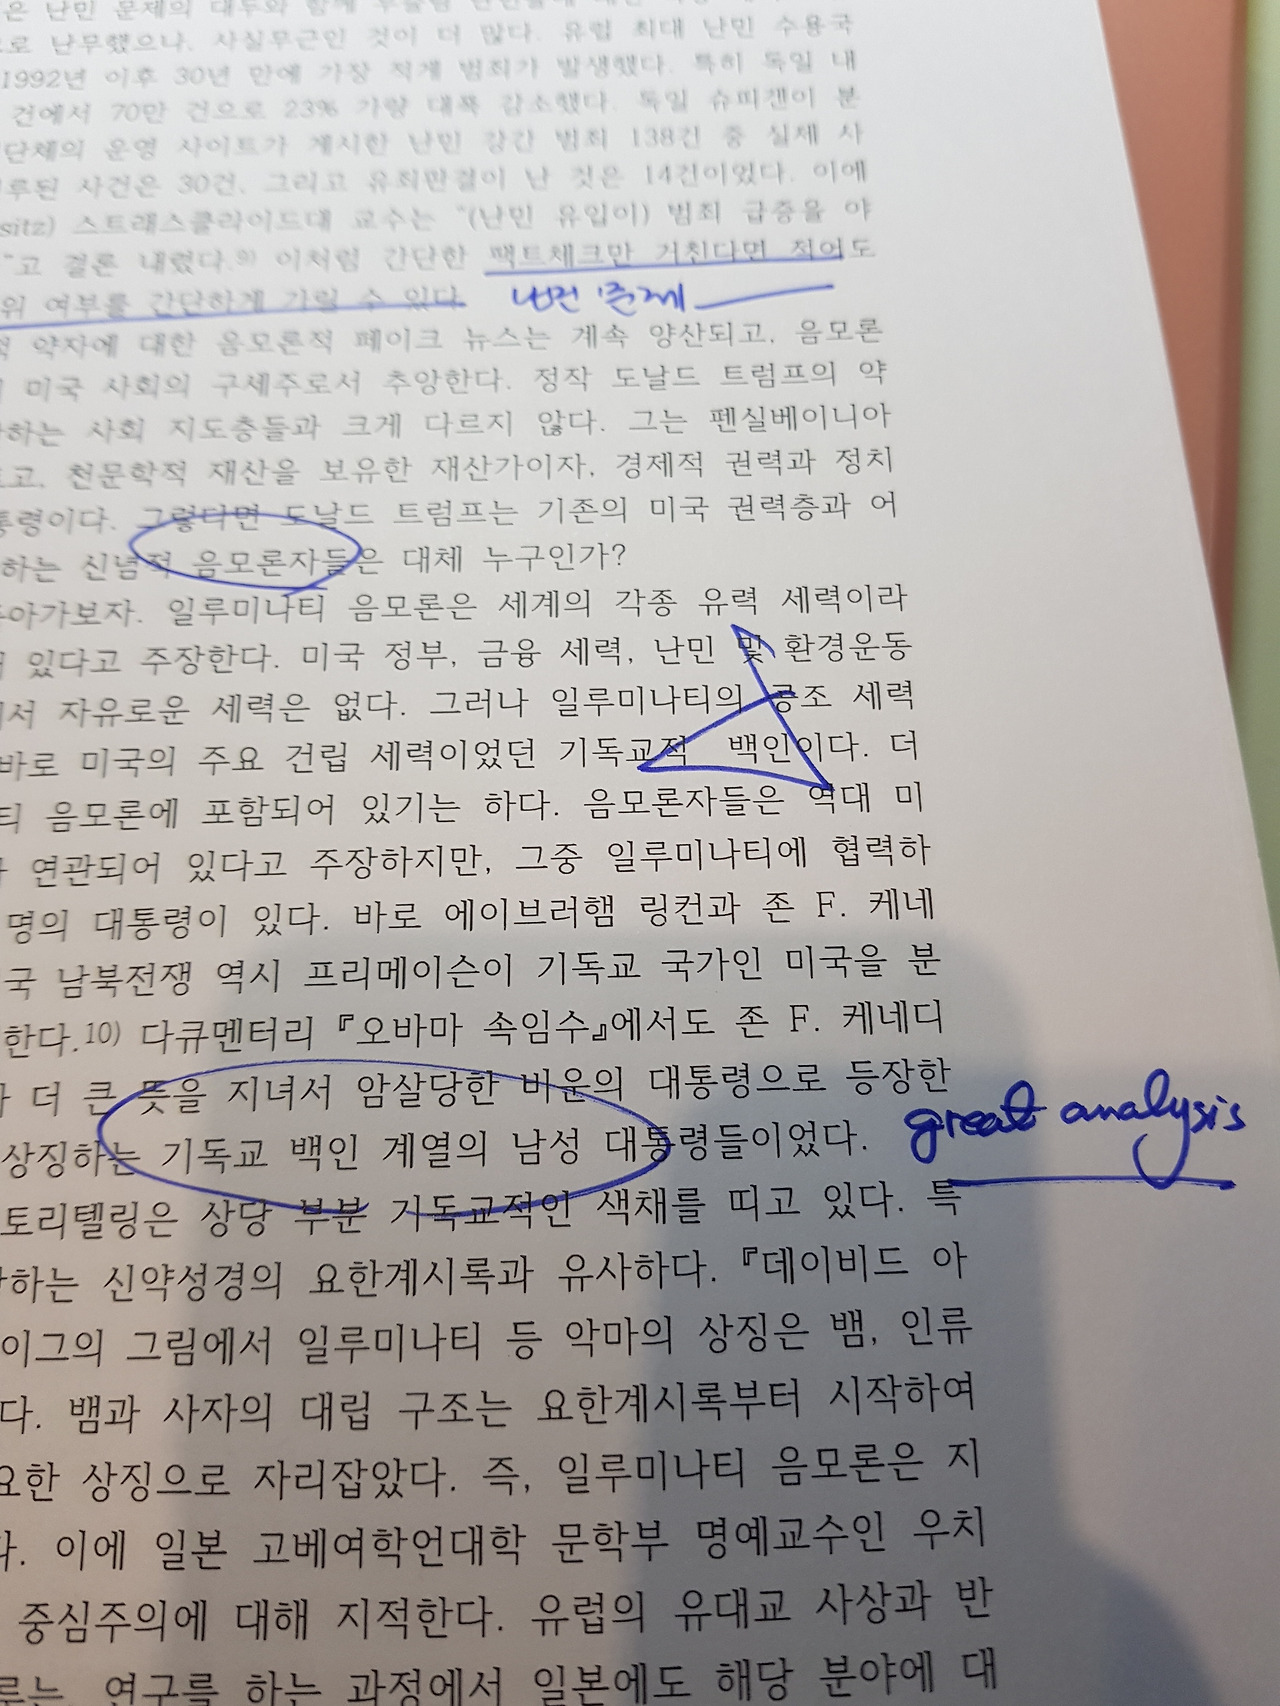 은 난민 문제의 대두와 함께
으로 난무했으나, 사실무근인 것이 더 많다. 유럽 최대 난민 수용국
1992년 이후 30년 만에 가장 적게 범죄가 발생했다. 특히 독일 내
건에서 70만 건으로 23% 가량 대폭 감소했다. 독일 슈피겐이 분
단체의 운영 사이트가 게시한 난민 강간 범죄 138건 중 실제 사
루된 사건은 30건, 그리고 유죄판결이 난 것은 14건이었다. 이에
sitz) 스트래스클라이드대 교수는 "(난민 유입이) 범죄 급증을 야
"고 결론 내렸다.9) 이처럼 간단한 팩트체크만 거친다면 적어도
위 여부를 간단하게 가릴 수 있다.
약자에 대한 음모론적 페이크 뉴스는 계속 양산되고, 음모론
미국 사회의 구세주로서 추앙한다. 정작 도날드 트럼프의 약
하는 사회 지도층들과 크게 다르지 않다. 그는 펜실베이니아
고, 천문학적 재산을 보유한 재산가이자, 경제적 권력과 정치
통령이다. 그렇다면 도날드 트럼프는 기존의 미국 권력층과 어
하는 신념적 음모론자들은 대체 누구인가?
아가보자. 일루미나티 음모론은 세계의 각종 유력 세력이라
있다고 주장한다. 미국 정부, 금융 세력, 난민 및 환경운동
서 자유로운 세력은 없다. 그러나 일루미나티의 공조 세력
바로 미국의 주요 건립 세력이었던 기독교적 백인이다. 더
티 음모론에 포함되어 있기는 하다. 음모론자들은 역대 미
연관되어 있다고 주장하지만, 그중 일루미나티에 협력하
명의 대통령이 있다. 바로 에이브러햄 링컨과 존 F. 케네
국 남북전쟁 역시 프리메이슨이 기독교 국가인 미국을 분
한다.10) 다큐멘터리 『오바마 속임수』에서도 존 F. 케네디
더 큰 뜻을 지녀서 암살당한 비운의 대통령으로 등장한
상징하는 기독교 백인 계열의 남성 대통령들이었다. great analysis
토리텔링은 상당 부분 기독교적인 색채를 띠고 있다. 특
하는 신약성경의 요한계시록과 유사하다. 『데이비드 아
이그의 그림에서 일루미나티 등 악마의 상징은 뱀, 인류
다. 뱀과 사자의 대립 구조는 요한계시록부터 시작하여
요한 상징으로 자리잡았다. 즉, 일루미나티 음모론은 지
다. 이에 일본 고베여학언대학 문학부 명예교수인 우치
중심주의에 대해 지적한다. 유럽의 유대교 사상과 반
연구를 하는 과정에서 일본에도 해당 분야에 대